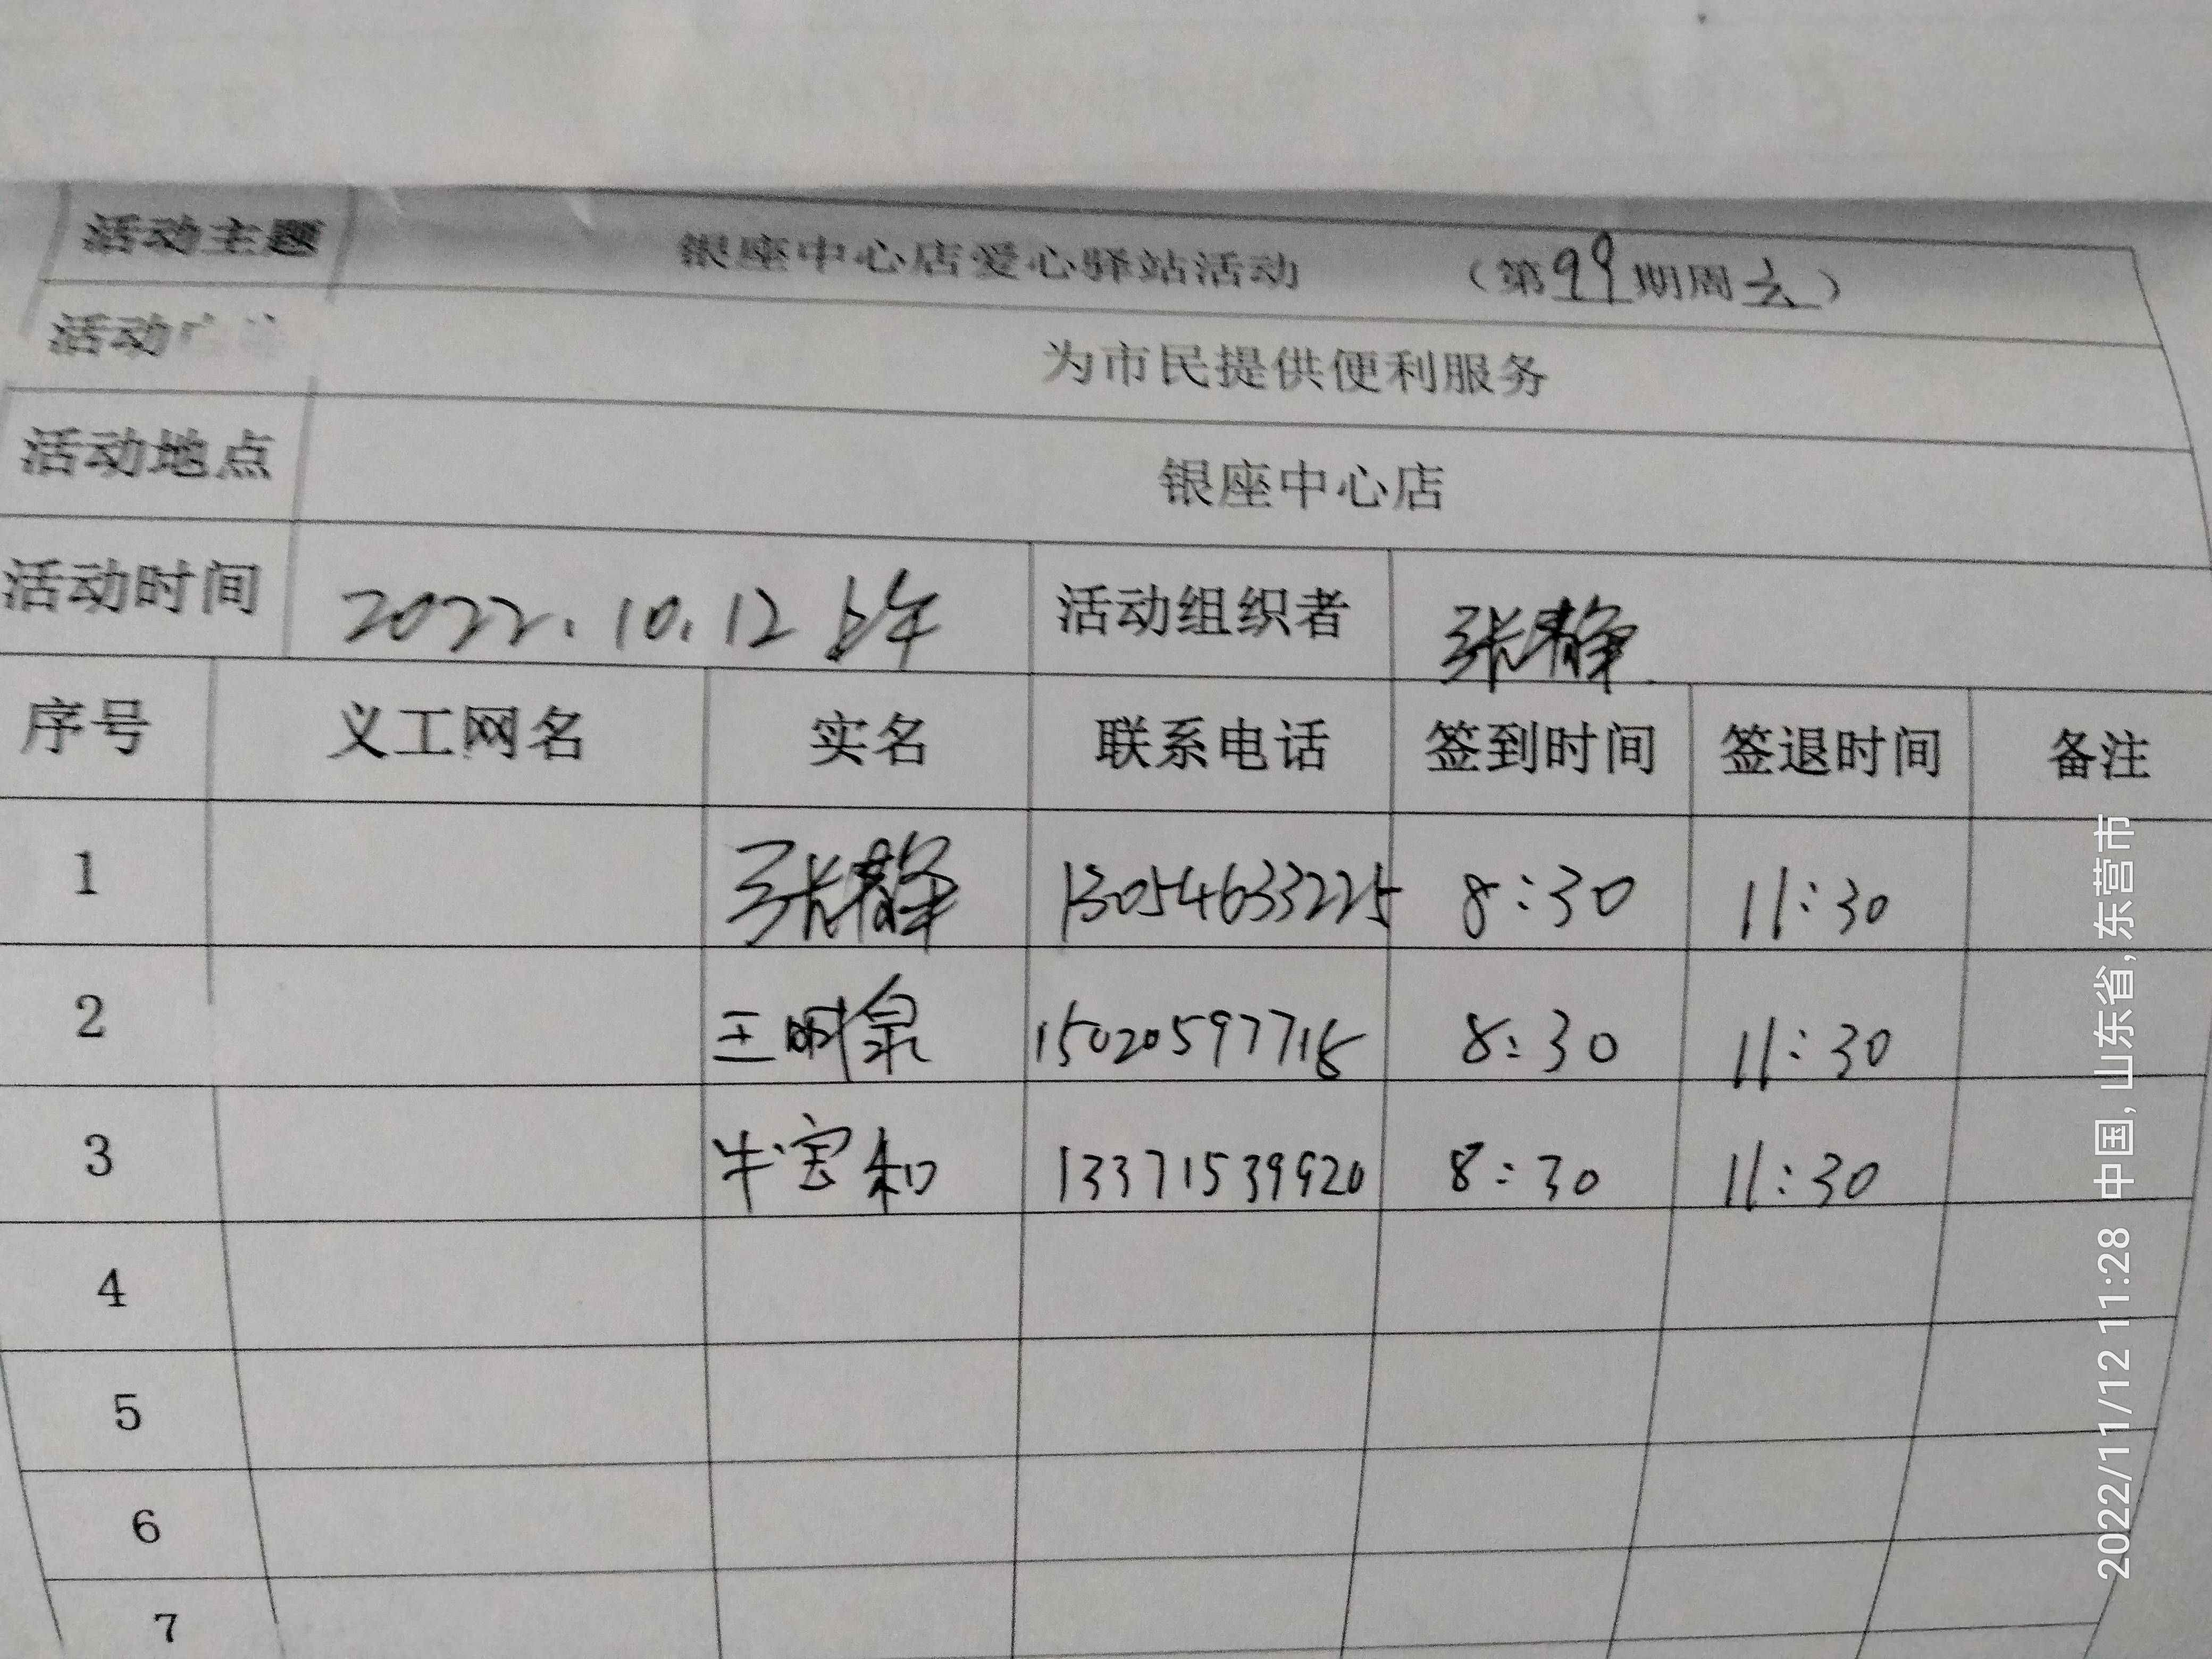 活动主题 银座中心店爱心驿站活动 （第99期周六）
活动 为市民提供便利服务
活动地点 银座中心店
活动时间 2022.10.12 上午 活动组织者 张静
序号 义工网名 实名 联系电话 签到时间 签退时间 备注
1 张静 13054633225 8:30 11:30
2 王明泉 15020597718 8:30 11:30
3 牛宝和 13371539920 8:30 11:30
4
5
6
7
2022/11/12 11:28 中国,山东省,东营市